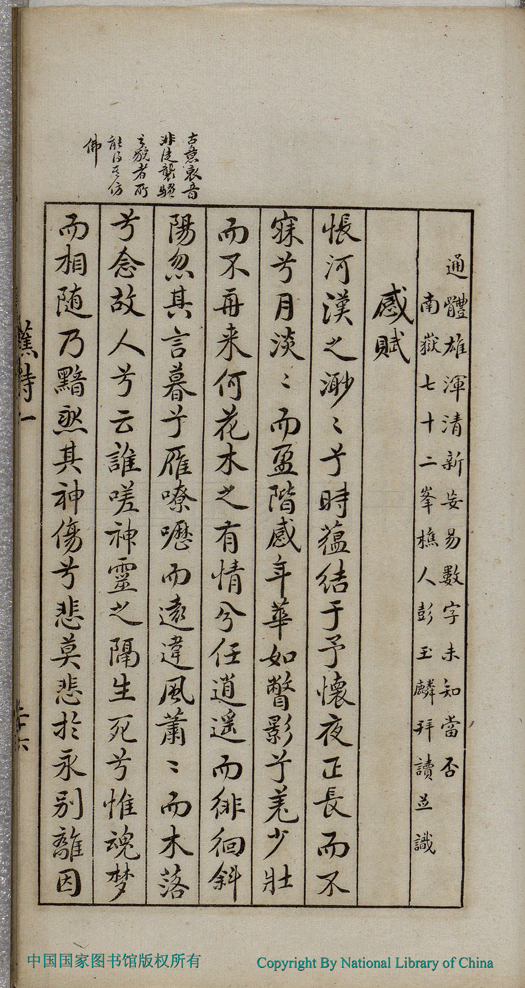 通體雄渾清新妄易數字未知當否
南嶽七十二峯樵人彭玉麟拜讀並識
感賦
悵河漢之渺〻兮時蘊結于予懷夜正長而不
寐兮月淡〻而盈階感年華如瞥影兮羌少壯
而不再来何花木之有情兮任逍遥而徘徊斜
陽忽其言暮兮雁嘹嚦而遠違風蕭〻而木落
兮念故人兮云誰嗟神靈之隔生死兮惟魂梦
而相随乃黯然其神傷兮悲莫悲於永别離因
古意哀音
非徒襲騷
之貌者所
能得其仿
佛
詩一
中国国家图书馆版权所有
Copyright By National Library of China